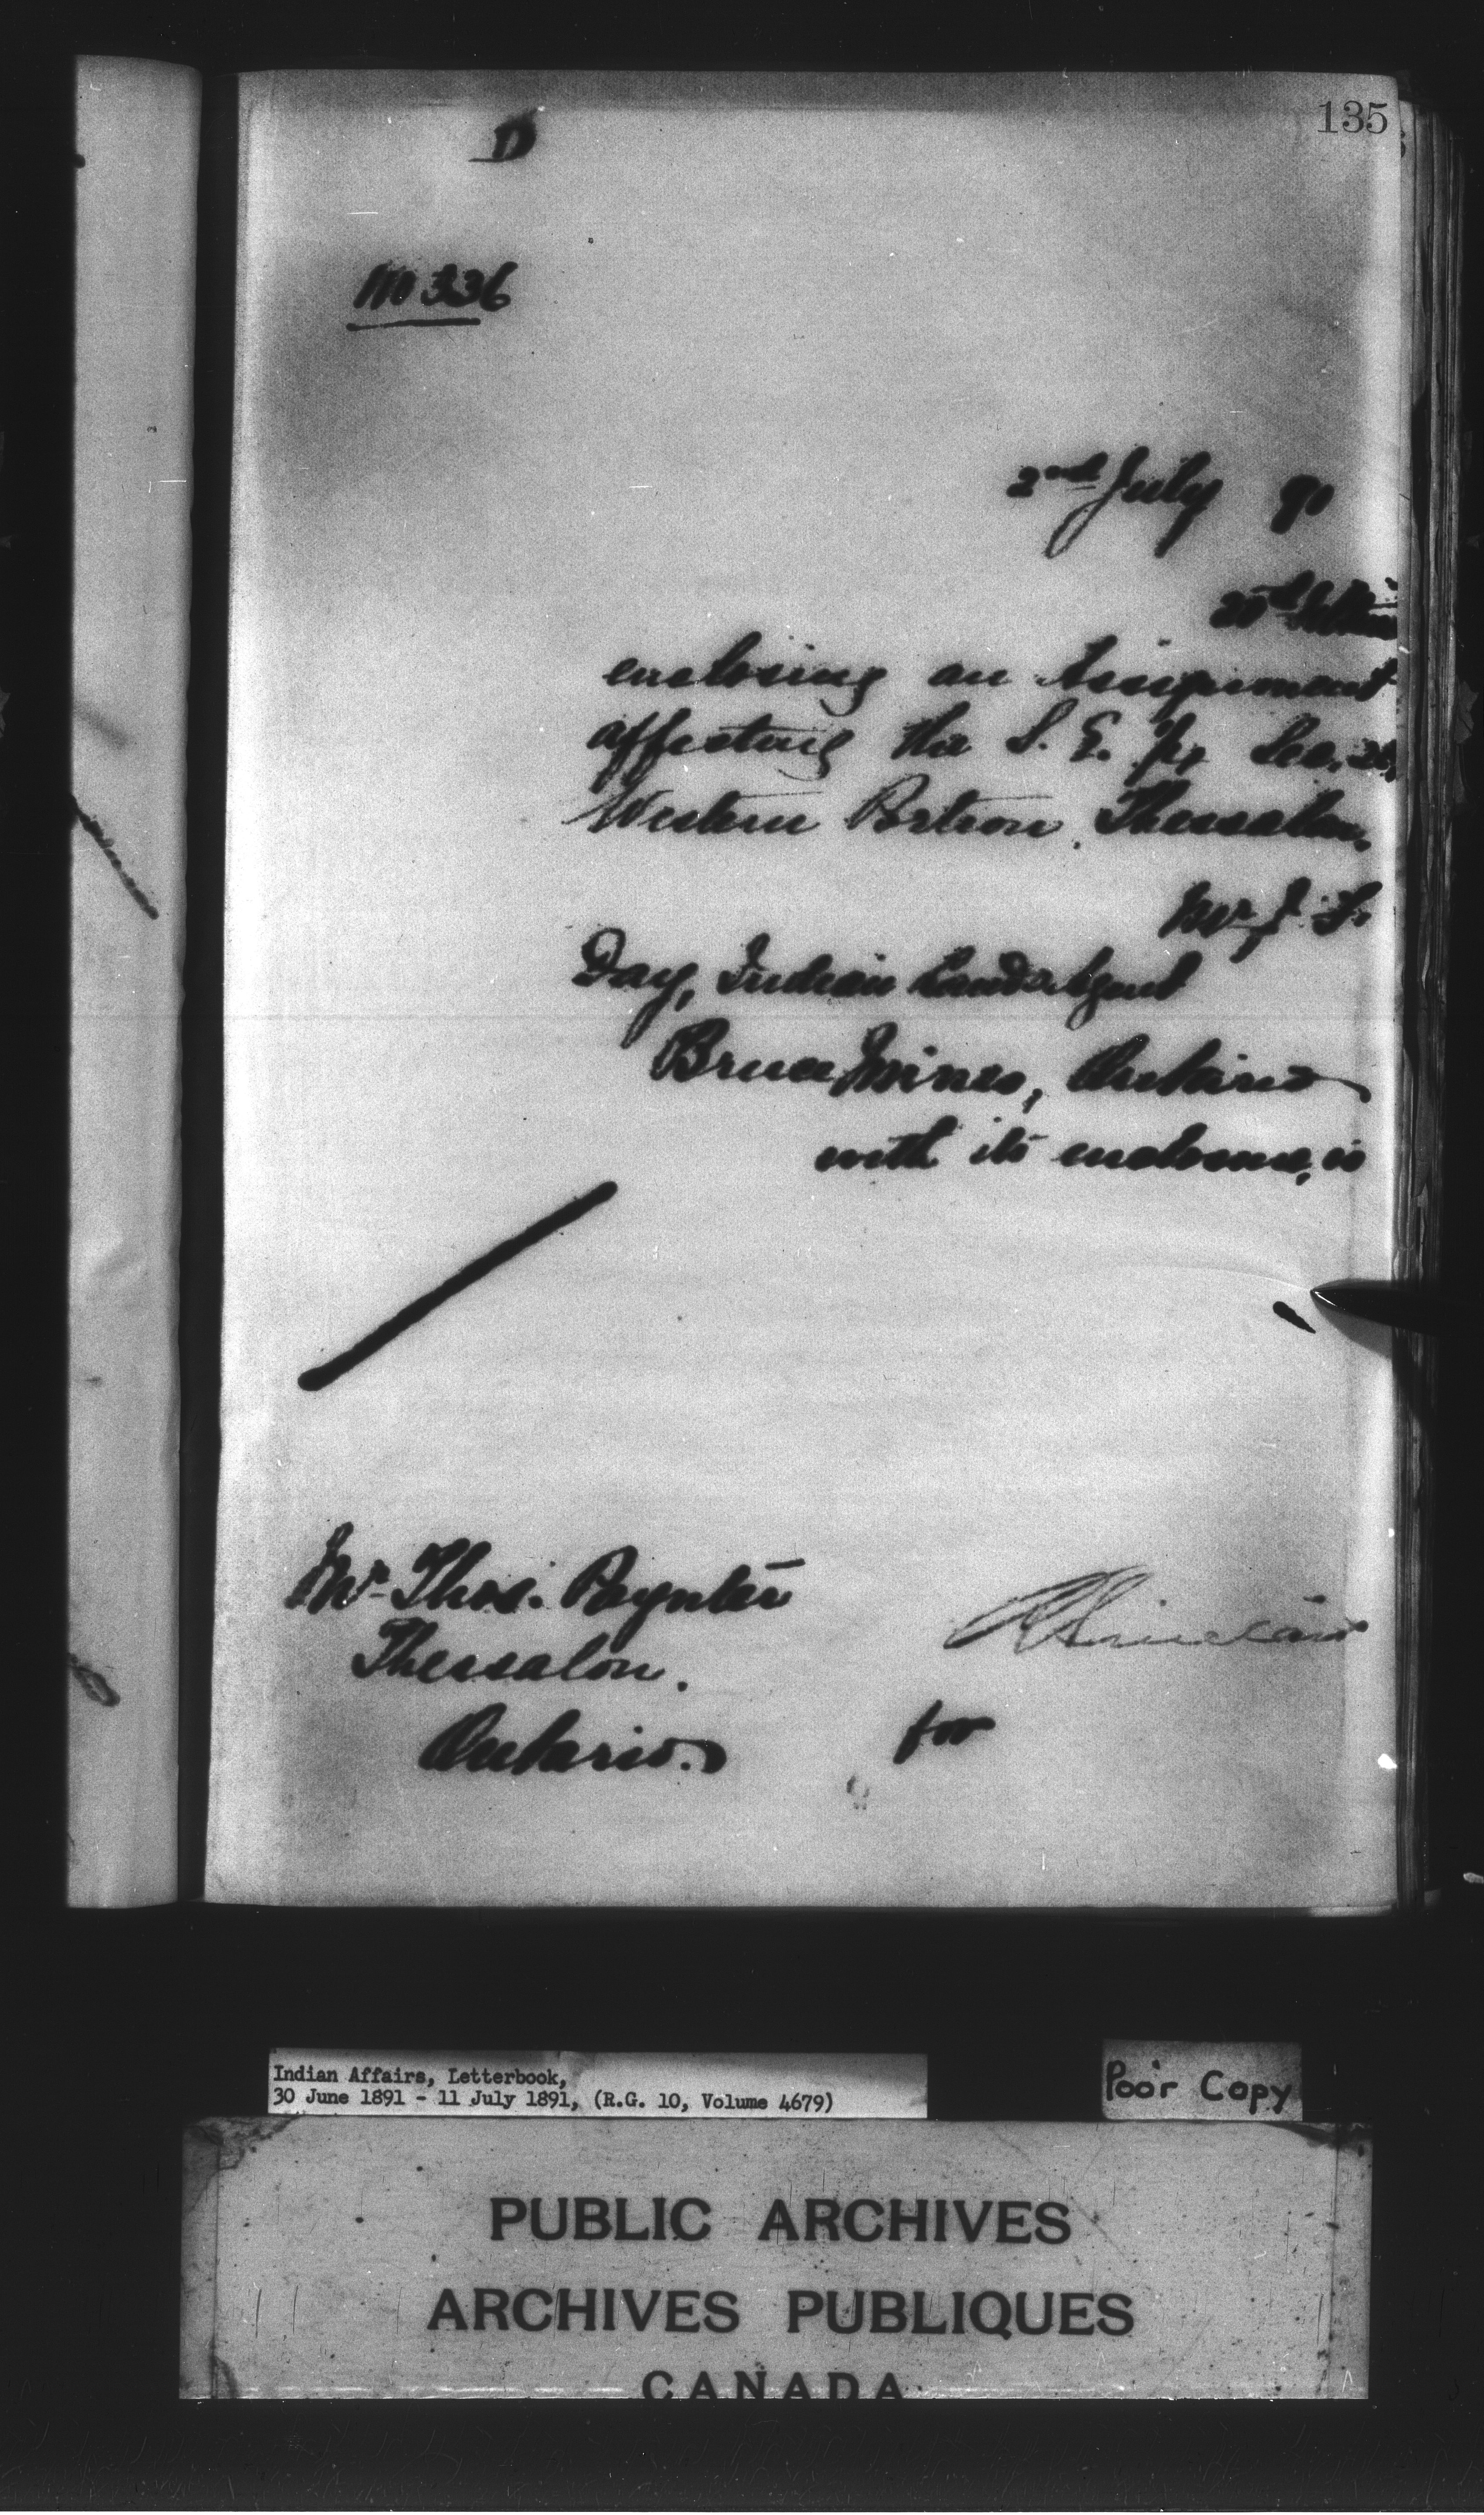 135
D
No 336
2nd July 91
enclosing an Assignment
affecting the S. E. 1/4 Sec. 28,
Western Portion, Thessalon.
Mr J. S.
Day, Indian Land Agent
Bruce Mines, Ontario
with its enclosure, is
Mr Thos. Poynter
Thessalon.
Ontario.
for
Indian Affairs, Letterbook,
30 June 1891 - 11 July 1891, (R.G. 10, Volume 4679)
Poor Copy
PUBLIC ARCHIVES
ARCHIVES PUBLIQUES
CANADA